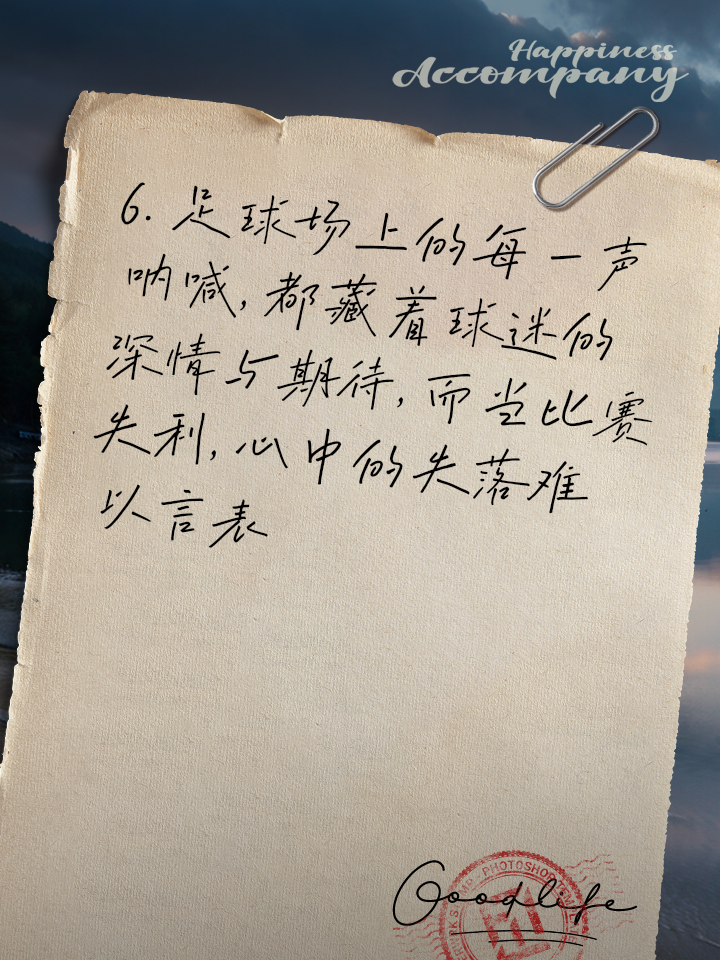 Happiness
Accompany
6. 足球场上的每一声
呐喊,都藏着球迷的
深情与期待,而当比赛
失利,心中的失落难
以言表
PHOTOSHOP
Goodlife